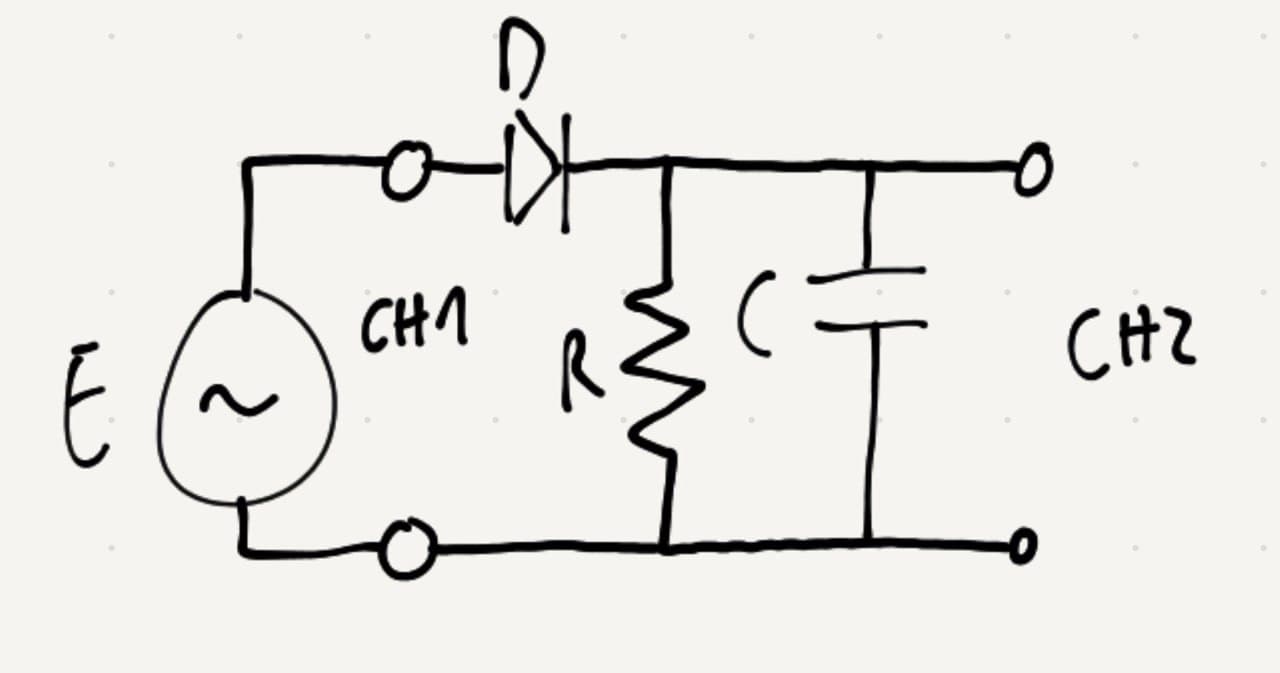 D
E
CH1
R
C
CH2